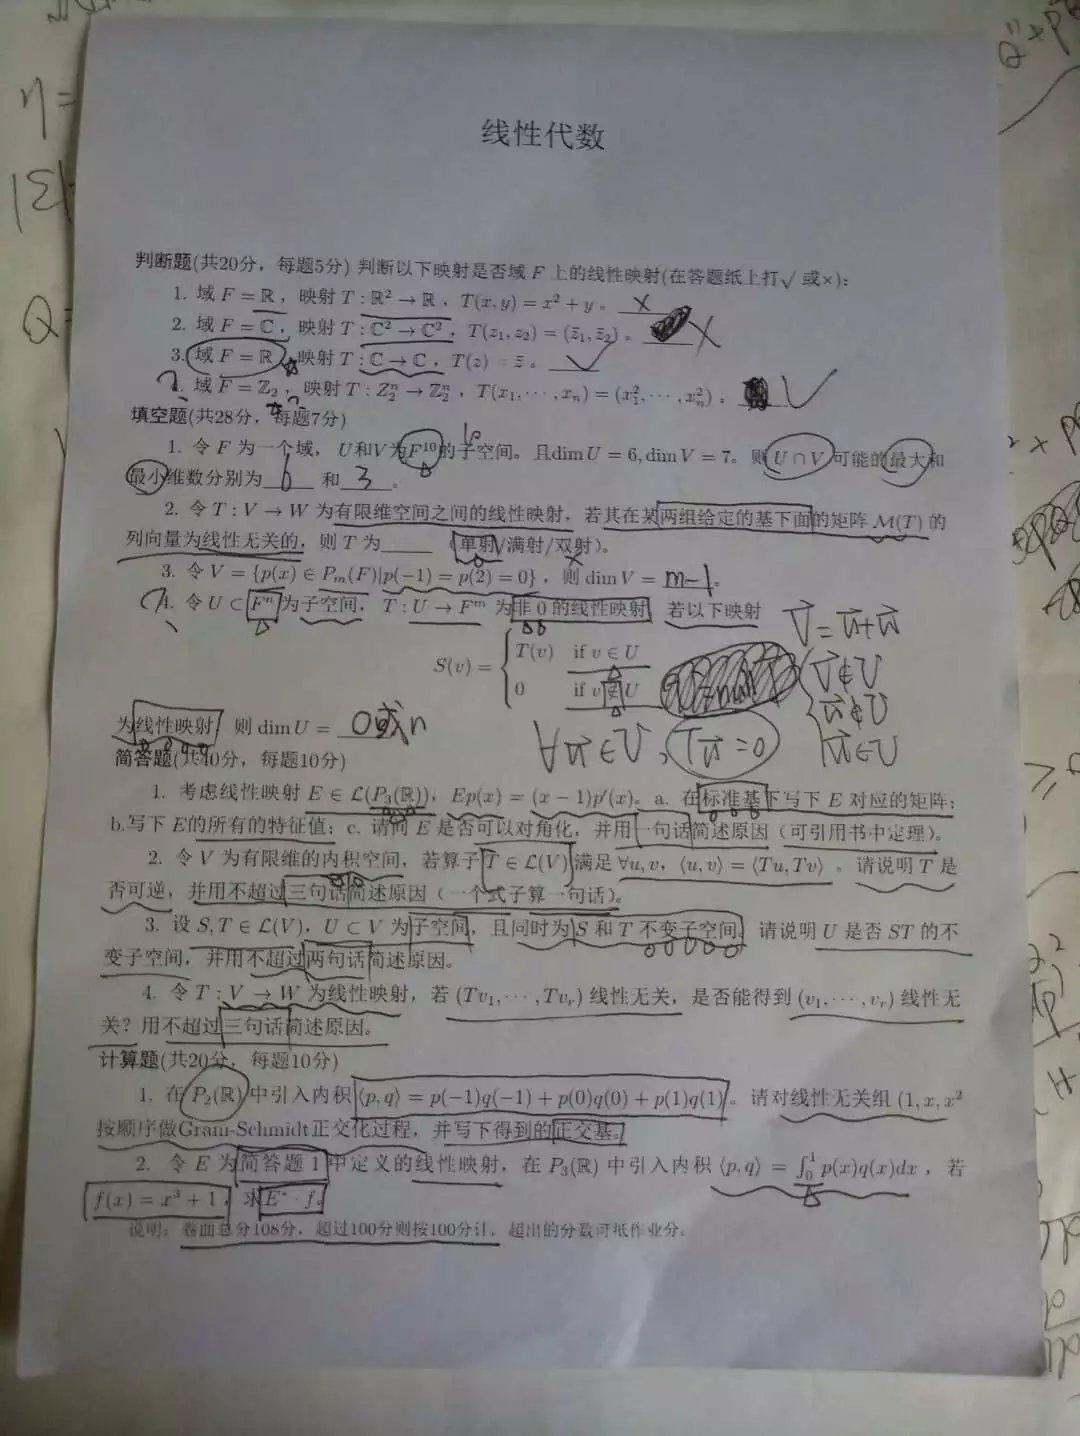 η=
|Σ|
Q=
线性代数
判断题(共20分，每题5分) 判断以下映射是否域 F 上的线性映射(在答题纸上打√ 或×):
1. 域 F = ℝ，映射 T : ℝ² → ℝ，T(x, y) = x² + y 。 ×
2. 域 F = ℂ，映射 T : ℂ² → ℂ²，T(z₁, z₂) = (z̄₁, z̄₂) 。 ×
3. 域 F = ℝ，映射 T : ℂ → ℂ，T(z) = z̄ 。 √
4. 域 F = ℤ₂，映射 T : Z₂ⁿ → Z₂ⁿ，T(x₁, ⋯ , xₙ) = (x₁², ⋯ , xₙ²) 。 √
填空题(共28分，每题7分)
1. 令 F 为一个域， U和V为F¹⁰的子空间。且dim U = 6, dim V = 7。则 U ∩ V 可能的最大和
最小维数分别为 6 和 3 。
2. 令 T : V → W 为有限维空间之间的线性映射，若其在某两组给定的基下面的矩阵 M(T) 的
列向量为线性无关的，则 T 为____ （单射/满射/双射）。
3. 令 V = {p(x) ∈ Pₘ(F)|p(−1) = p(2) = 0} ，则 dim V = m-1。
4. 令 U ⊂ Fⁿ 为子空间， T : U → Fᵐ 为非 0 的线性映射 若以下映射
S(v) = { T(v) if v ∈ U
0 if v ∉ U
v⃗=u⃗+w⃗
v⃗∉U
w⃗∉U
u⃗∈U
为线性映射 则 dim U = 0或n
∀u⃗∈U, Tu⃗=0
简答题(共40分，每题10分)
1. 考虑线性映射 E ∈ L(P₃(ℝ))，Ep(x) = (x − 1)p′(x)。a. 在标准基下写下 E 对应的矩阵；
b.写下 E的所有的特征值；c. 请问 E 是否可以对角化，并用一句话简述原因（可引用书中定理）。
2. 令 V 为有限维的内积空间，若算子 T ∈ L(V) 满足 ∀u, v，⟨u, v⟩ = ⟨Tu, Tv⟩ 。请说明 T 是
否可逆，并用不超过三句话简述原因（一个式子算一句话）。
3. 设 S, T ∈ L(V)，U ⊂ V 为子空间，且同时为 S 和 T 不变子空间。请说明 U 是否 ST 的不
变子空间，并用不超过两句话简述原因。
4. 令 T : V → W 为线性映射，若 (Tv₁, ⋯ , Tvᵣ) 线性无关，是否能得到 (v₁, ⋯ , vᵣ) 线性无
关？用不超过三句话简述原因。
计算题(共20分，每题10分)
1. 在 P₂(ℝ) 中引入内积 ⟨p, q⟩ = p(−1)q(−1) + p(0)q(0) + p(1)q(1) 。请对线性无关组 (1, x, x²
按顺序做Gram-Schmidt正交化过程，并写下得到的正交基。
2. 令 E 为简答题 1 中定义的线性映射，在 P₃(ℝ) 中引入内积 ⟨p, q⟩ = ∫₀¹ p(x)q(x)dx ，若
f(x) = x³ + 1，求E* · f。
说明：卷面总分108分，超过100分则按100分计，超出的分数可抵作业分。